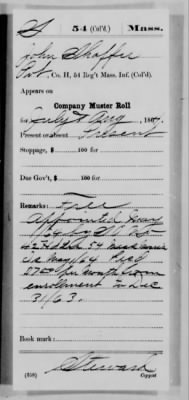 S | 54 (Col'd.) | Mass.
John Shaffer
Pvt, Co. H, 54 Reg't Mass. Inf. (Col'd.)
Appears on
Company Muster Roll
for July & Aug, 1864.
Present or absent Present
Stoppage, $ 100 for
Due Gov't, $ 100 for
Remarks: Free
Appointed
54 Mass
May/64
per month from
enrolment to Dec
31/63.
Book mark:
Steward
(358) Copyist.